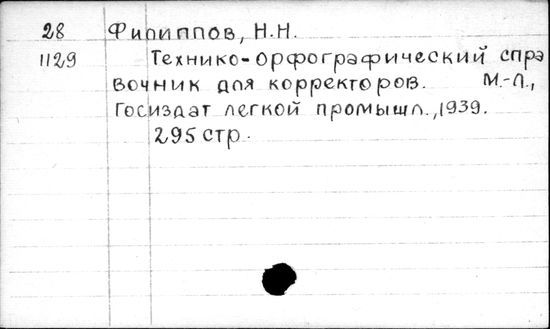 28 Филиппов, Н.Н.
1129 Технико-орфографический спра
вочник для корректоров. М.-Л.,
Госиздат легкой промышл., 1939.
295 стр.